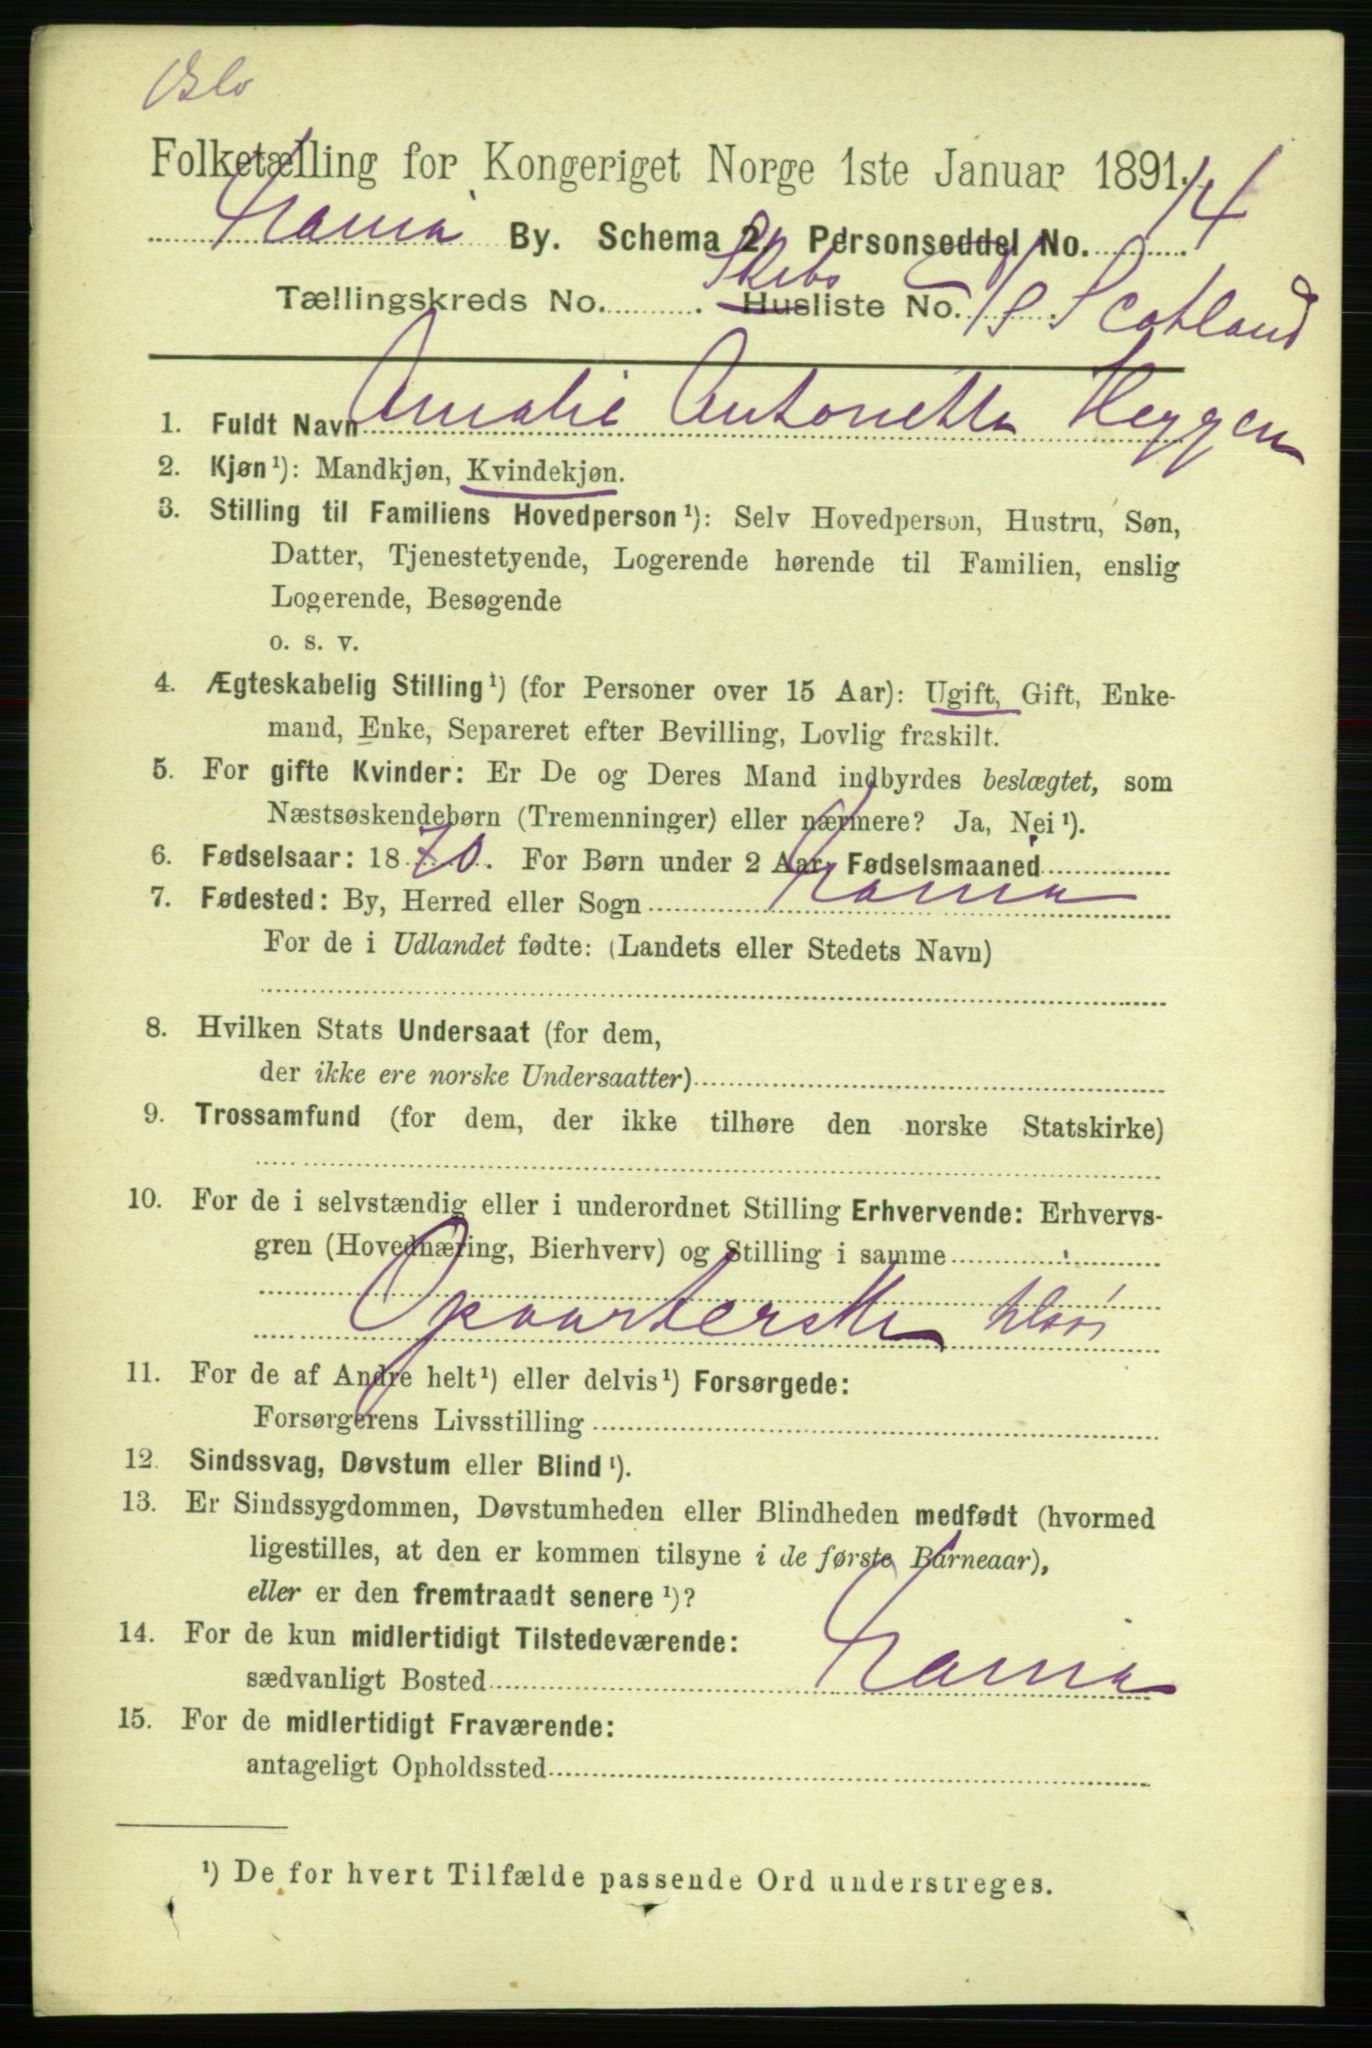 Oslo
Folketælling for Kongeriget Norge 1ste Januar 1891.
Xania By. Schema 2. Personseddel No. 14
Tællingskreds No. Skibs Husliste No. S/S Scotland
1. Fuldt Navn Amalie Antonette Heggen
2. Kjøn¹): Mandkjøn, Kvindekjøn.
3. Stilling til Familiens Hovedperson¹): Selv Hovedperson, Hustru, Søn,
Datter, Tjenestetyende, Logerende hørende til Familien, enslig
Logerende, Besøgende
o. s. v.
4. Ægteskabelig Stilling¹) (for Personer over 15 Aar): Ugift, Gift, Enke-
mand, Enke, Separeret efter Bevilling, Lovlig fraskilt.
5. For gifte Kvinder: Er De og Deres Mand indbyrdes beslægtet, som
Næstsøskendebørn (Tremenninger) eller nærmere? Ja, Nei¹).
6. Fødselsaar: 1870. For Børn under 2 Aar, Fødselsmaaned
7. Fødested: By, Herred eller Sogn Xania
For de i Udlandet fødte: (Landets eller Stedets Navn)
8. Hvilken Stats Undersaat (for dem,
der ikke ere norske Undersaatter)
9. Trossamfund (for dem, der ikke tilhøre den norske Statskirke)
10. For de i selvstændig eller i underordnet Stilling Erhvervende: Erhvervs-
gren (Hovednæring, Bierhverv) og Stilling i samme
Opvarterske
11. For de af Andre helt¹) eller delvis¹) Forsørgede:
Forsørgerens Livsstilling
12. Sindssvag, Døvstum eller Blind¹).
13. Er Sindssygdommen, Døvstumheden eller Blindheden medfødt (hvormed
ligestilles, at den er kommen tilsyne i de første Barneaar),
eller er den fremtraadt senere¹)?
14. For de kun midlertidigt Tilstedeværende:
sædvanligt Bosted Xania
15. For de midlertidigt Fraværende:
antageligt Opholdssted
¹) De for hvert Tilfælde passende Ord understreges.